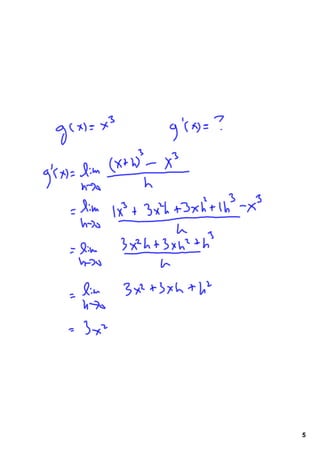 g(x) = x³ g'(x) = ?
g'(x) = lim h→0 ((x+h)³ − x³)/h
= lim h→0 (1x³ + 3x²h + 3xh² + 1h³ − x³)/h
= lim h→0 (3x²h + 3xh² + h³)/h
= lim h→0 3x² + 3xh + h²
= 3x²
5